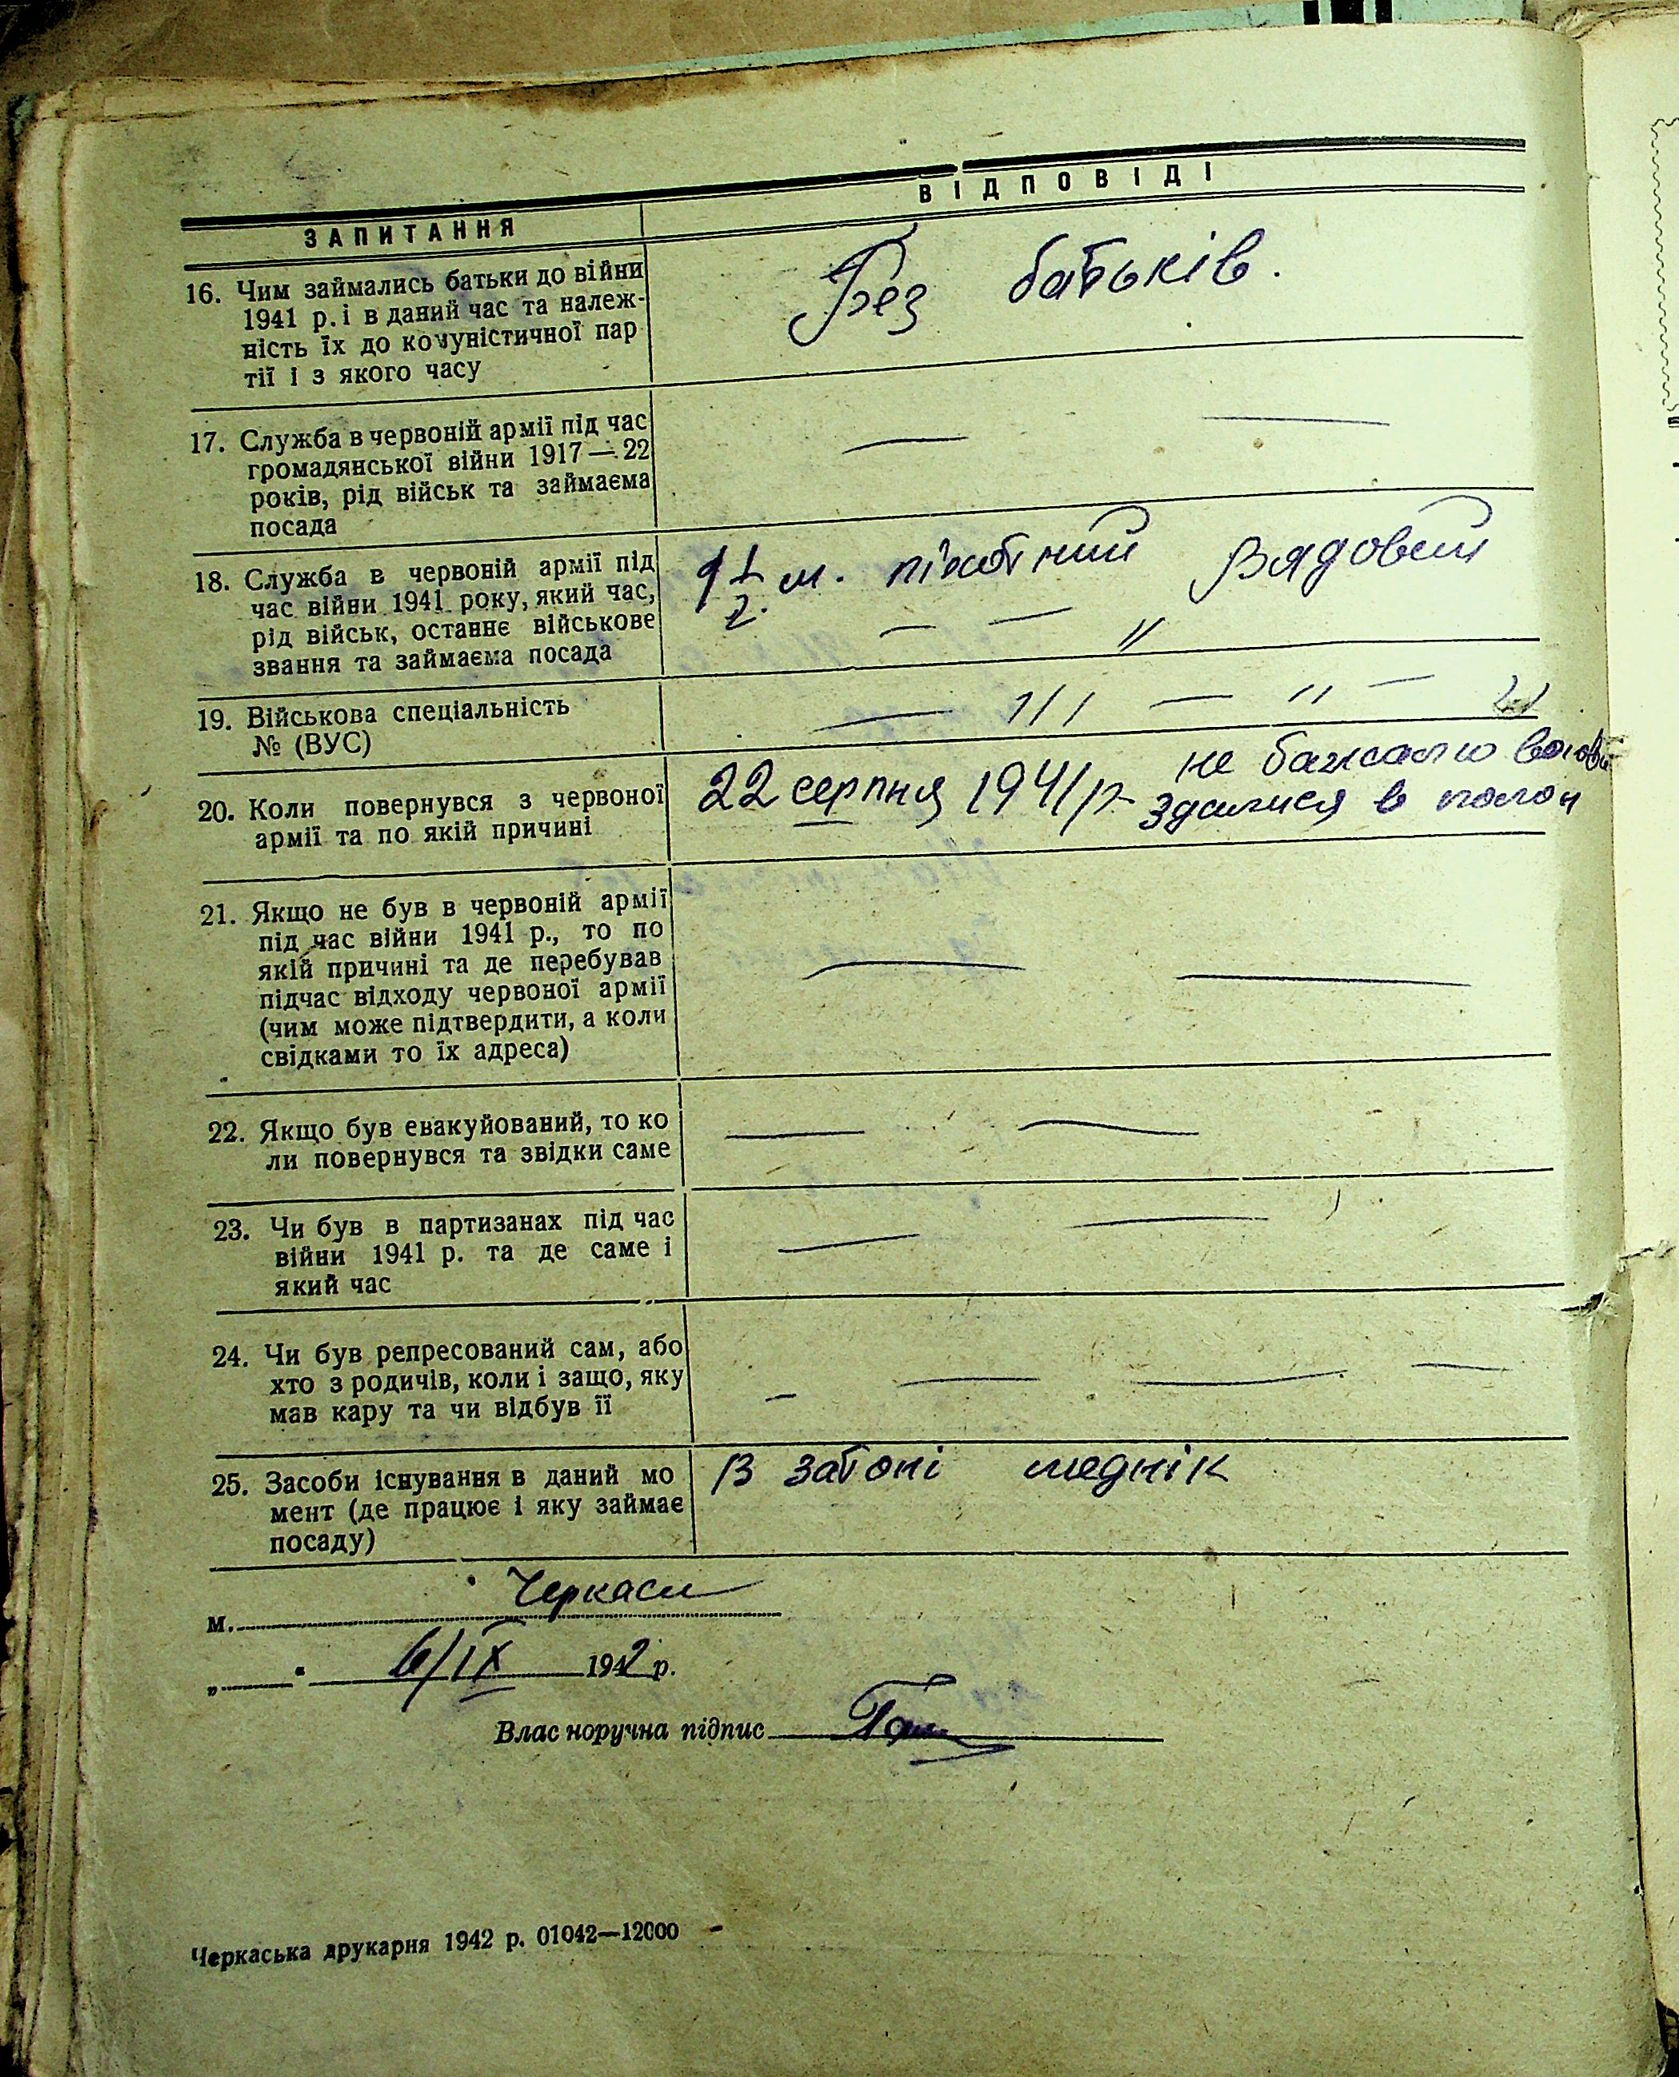 ЗАПИТАННЯ
ВІДПОВІДІ
16. Чим займались батьки до війни
1941 р. і в даний час та належ-
ність їх до комуністичної пар
тії і з якого часу
Без батьків.
17. Служба в червоній армії під час
громадянської війни 1917—22
років, рід військ та займаєма
посада
— —
18. Служба в червоній армії під
час війни 1941 року, який час,
рід військ, останнє військове
звання та займаєма посада
1 1/2 м. піхотний Рядовий
— — "
19. Військова спеціальність
№ (ВУС)
— /// — " —
20. Коли повернувся з червоної
армії та по якій причині
22 серпня 1941 р. не бажаючи
здалися в полон
21. Якщо не був в червоній армії
під час війни 1941 р., то по
якій причині та де перебував
підчас відходу червоної армії
(чим може підтвердити, а коли
свідками то їх адреса)
— —
22. Якщо був евакуйований, то ко
ли повернувся та звідки саме
— —
23. Чи був в партизанах під час
війни 1941 р. та де саме і
який час
— —
24. Чи був репресований сам, або
хто з родичів, коли і защо, яку
мав кару та чи відбув її
— — — —
25. Засоби існування в даний мо
мент (де працює і яку займає
посаду)
В затоні меднік
м. Черкаси
„ " 6/IX 1942 р.
Власноручна підпис
Черкаська друкарня 1942 р. 01042—12000